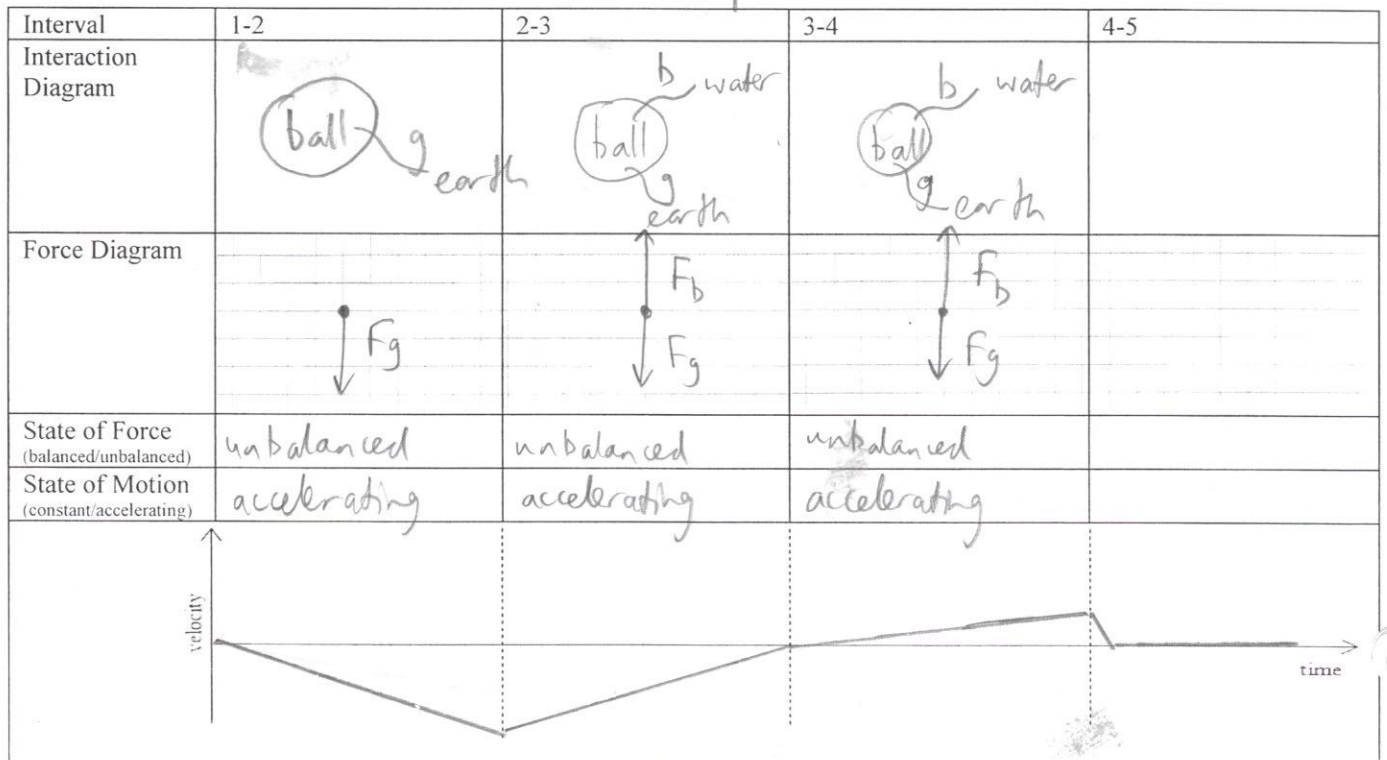 Interval 1-2 2-3 3-4 4-5
Interaction
Diagram
ball g earth
b water
ball
g
earth
b water
ball
g
earth
Force Diagram
Fg
Fb
Fg
Fb
Fg
State of Force
(balanced/unbalanced)
unbalanced unbalanced unbalanced
State of Motion
(constant/accelerating)
accelerating accelerating accelerating
velocity
time